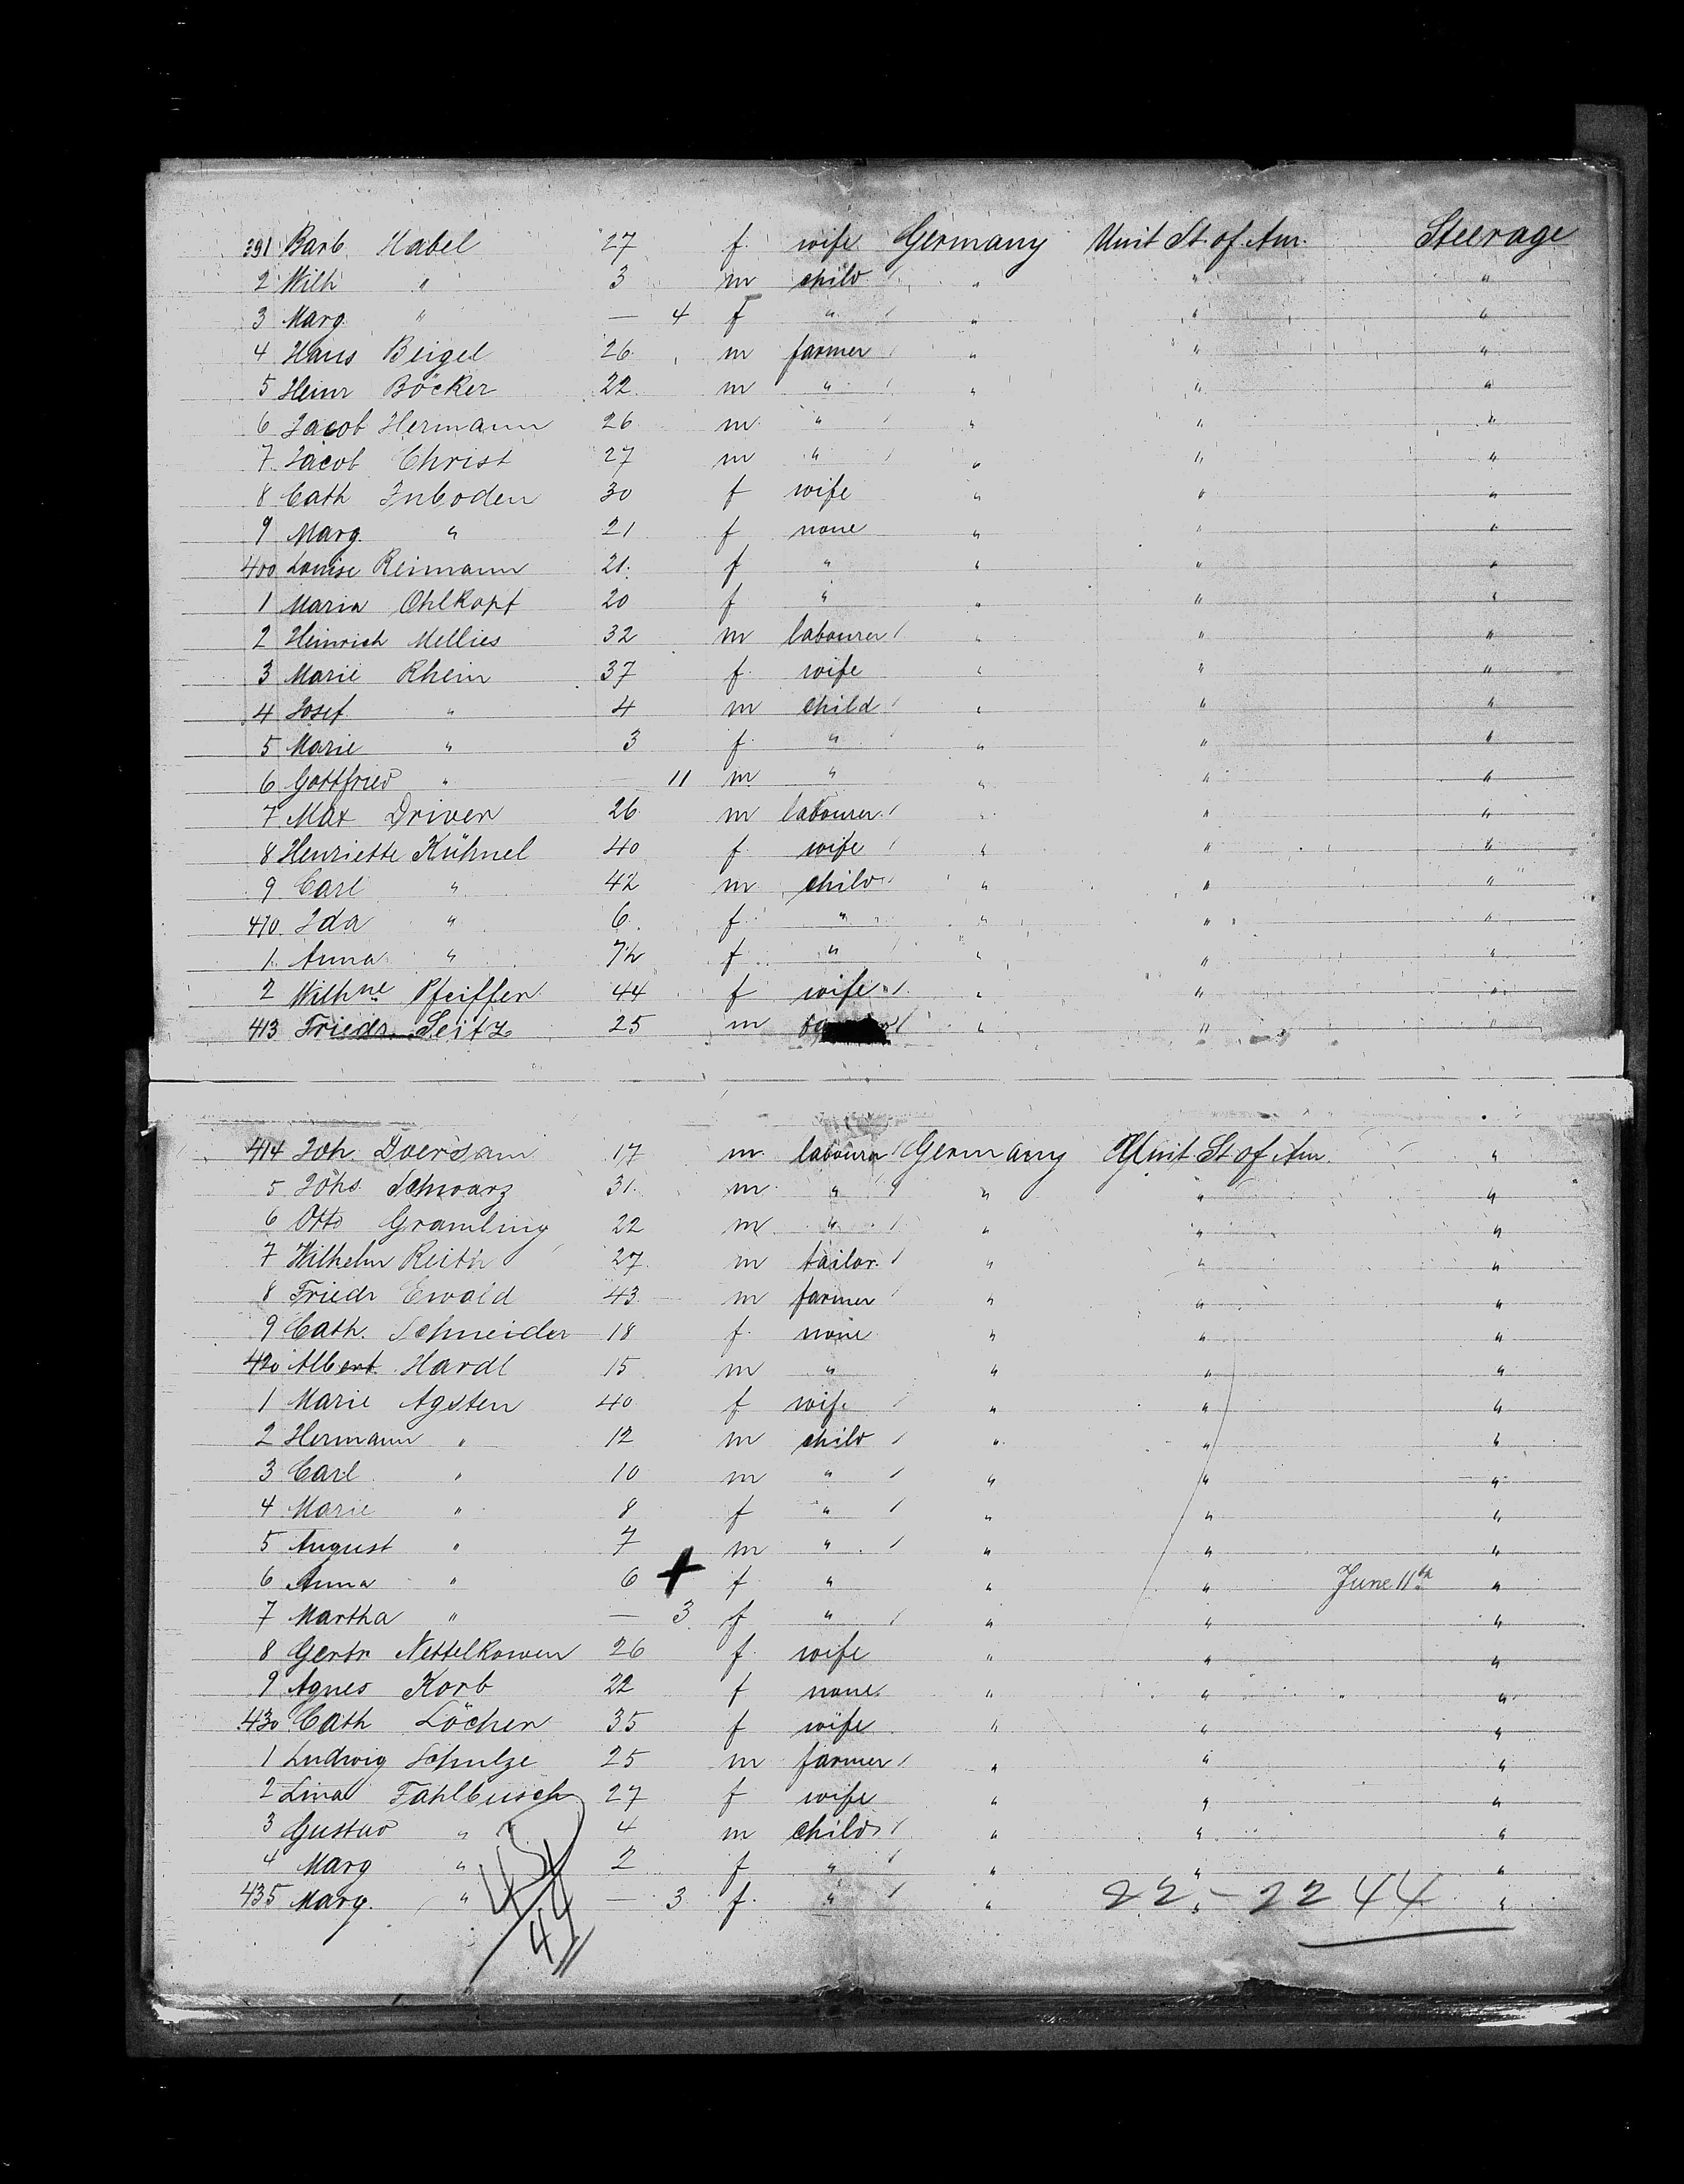 391 Barb Habel 27 f. wife Germany Unit St. of Am. Steerage
2 Wilh " 3 m child " " "
3 Marg " — 4 f " " " "
4 Hans Beigel 26 m farmer " " "
5 Heinr Böcker 22 m " " " "
6 Jacob Hermann 26 m " " " "
7 Jacob Christ 27 m " " " "
8 Cath Inboden 30 f wife " " "
9 Marg. " 21 f none " " "
400 Louise Reimann 21 f " " " "
1 Maria Ohlkopf 20 f " " " "
2 Heinrich Mellies 32 m labourer " " "
3 Marie Rhein 37 f. wife " " "
4 Josef " 4 m child " " "
5 Marie " 3 f. " " " "
6 Gottfried " — 11 m " " " "
7 Max Driver 26 m labourer " " "
8 Henriette Kühnel 40 f. wife " " "
9 Carl " 42 m child " " "
410 Ida " 6 f. " " " "
1 Anna " f " " " "
2 Wilhne Pfeiffer 44 f wife " " "
413 Friedr. Seitz 25 m " " "
414 Joh. Doersam 17 m labourer Germany Unit St of Am. "
5 Johs Schwarz 31 m " " " "
6 Otto Gramling 22 m " " " "
7 Wilhelm Reith 27 m tailor " " "
8 Friedr Ewald 43 m farmer " " "
9 Cath. Schneider 18 f. none " " "
420 Albert Hardt 15 m " " " "
1 Marie Agsten 40 f wife " " "
2 Hermann " 12 m child " " "
3 Carl " 10 m " " " "
4 Marie " 8 f " " " "
5 August " 7 m " " " "
6 Anna " 6 + f " " " June 11th "
7 Martha " — 3 f " " " "
8 Gertr Nettelkoven 26 f. wife " " "
9 Agnes Korb 22 f none " " "
430 Cath Löcher 35 f wife " " "
1 Ludwig Schulze 25 m farmer " " "
2 Lina Fahlbusch 27 f wife " " "
3 Gustav " 4 m child " " "
4 Marg " 2 f " " " "
435 Marg. " — 3 f. " " " "
45
44
22 - 22 44